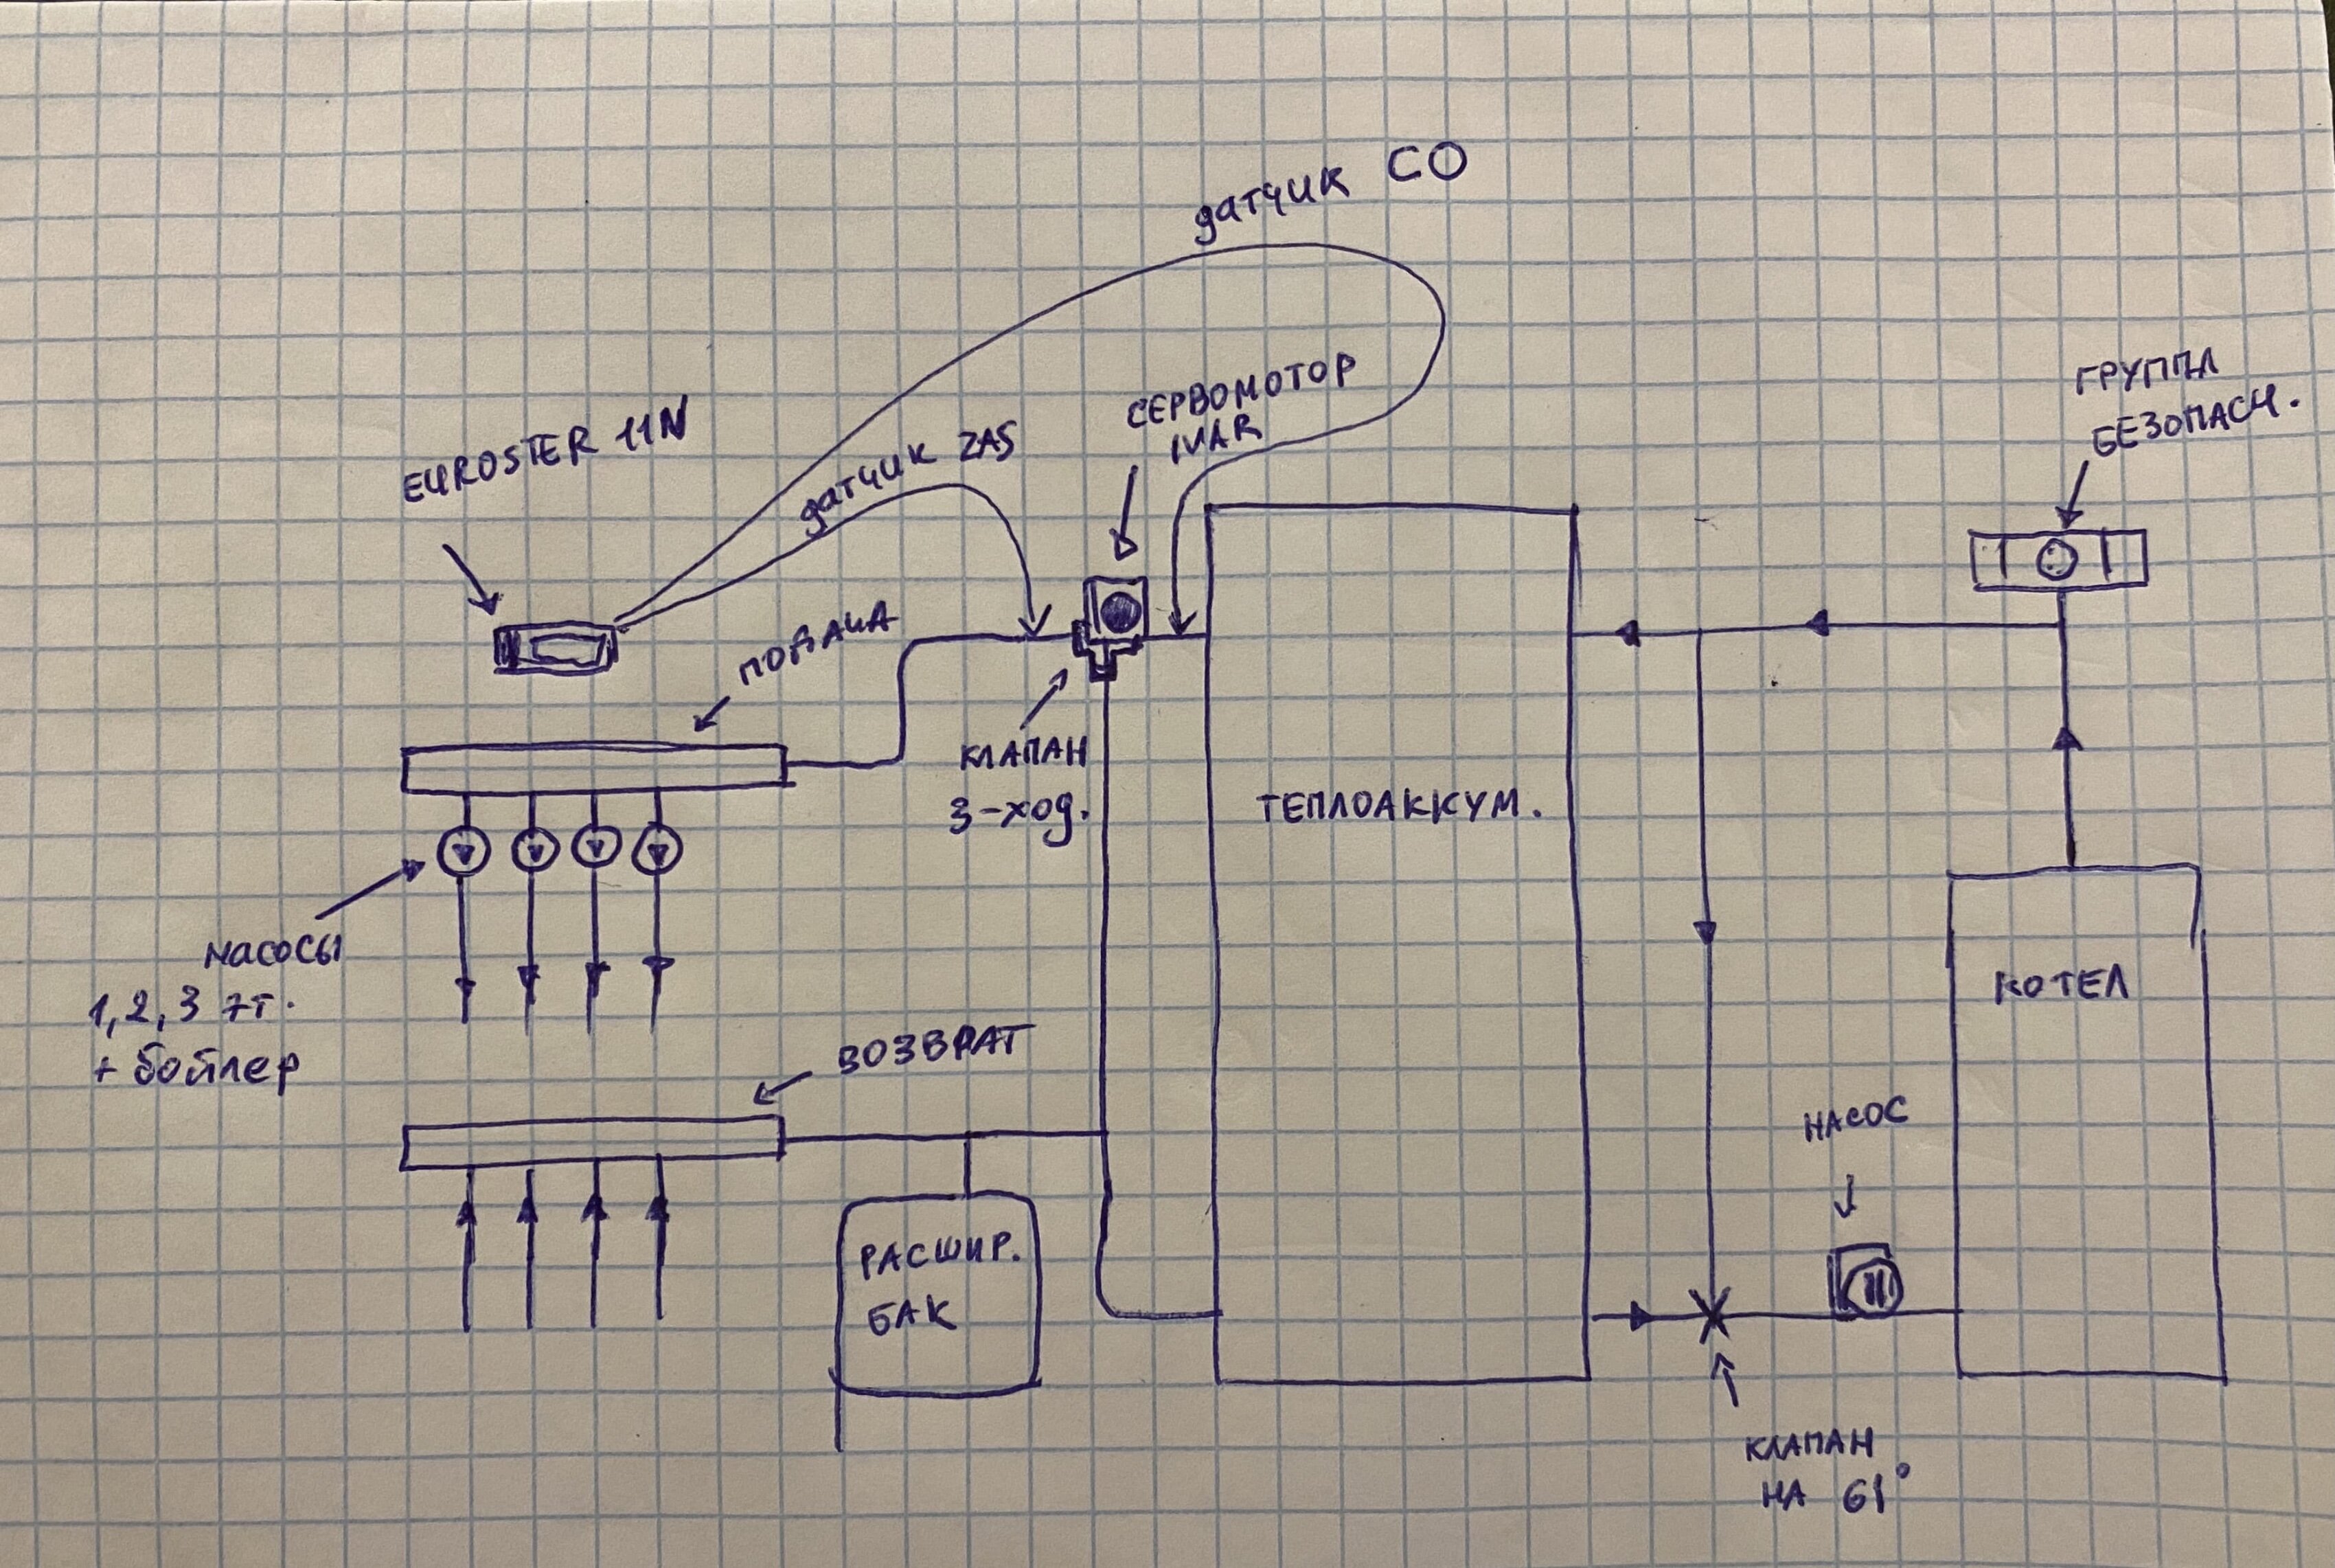 датчик CO
EUROSTER 11N
датчик ZAS
СЕРВОМОТОР
IVAR
ГРУППА
БЕЗОПАСН.
ПОДАЧА
КЛАПАН
3-ход.
ТЕПЛОАККУМ.
насосы
1,2,3 эт.
+ бойлер
КОТЕЛ
ВОЗВРАТ
НАСОС
РАСШИР.
БАК
КЛАПАН
НА 61°